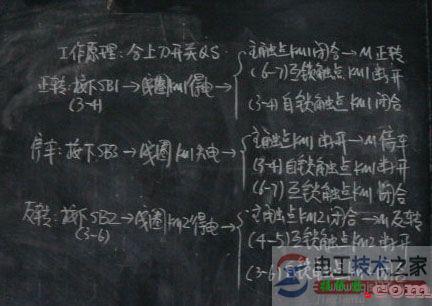 工作原理：合上刀开关QS.
正转：按下SB1→线圈KM1得电→
(3-4)
主触点KM1闭合→M正转
(6-7)互锁触点KM1断开
(3-4)自锁触点KM1闭合
停车：按下SB3→线圈KM1失电→
主触点KM1断开→M停车
(3-4)自锁触点KM1断开
(6-7)互锁触点KM1闭合
反转：按下SB2→线圈KM2得电→
(3-6)
主触点KM2闭合→M反转
(4-5)互锁触点KM2断开
(3-6)自锁触点
电工技术之家
www.dgjs123.com